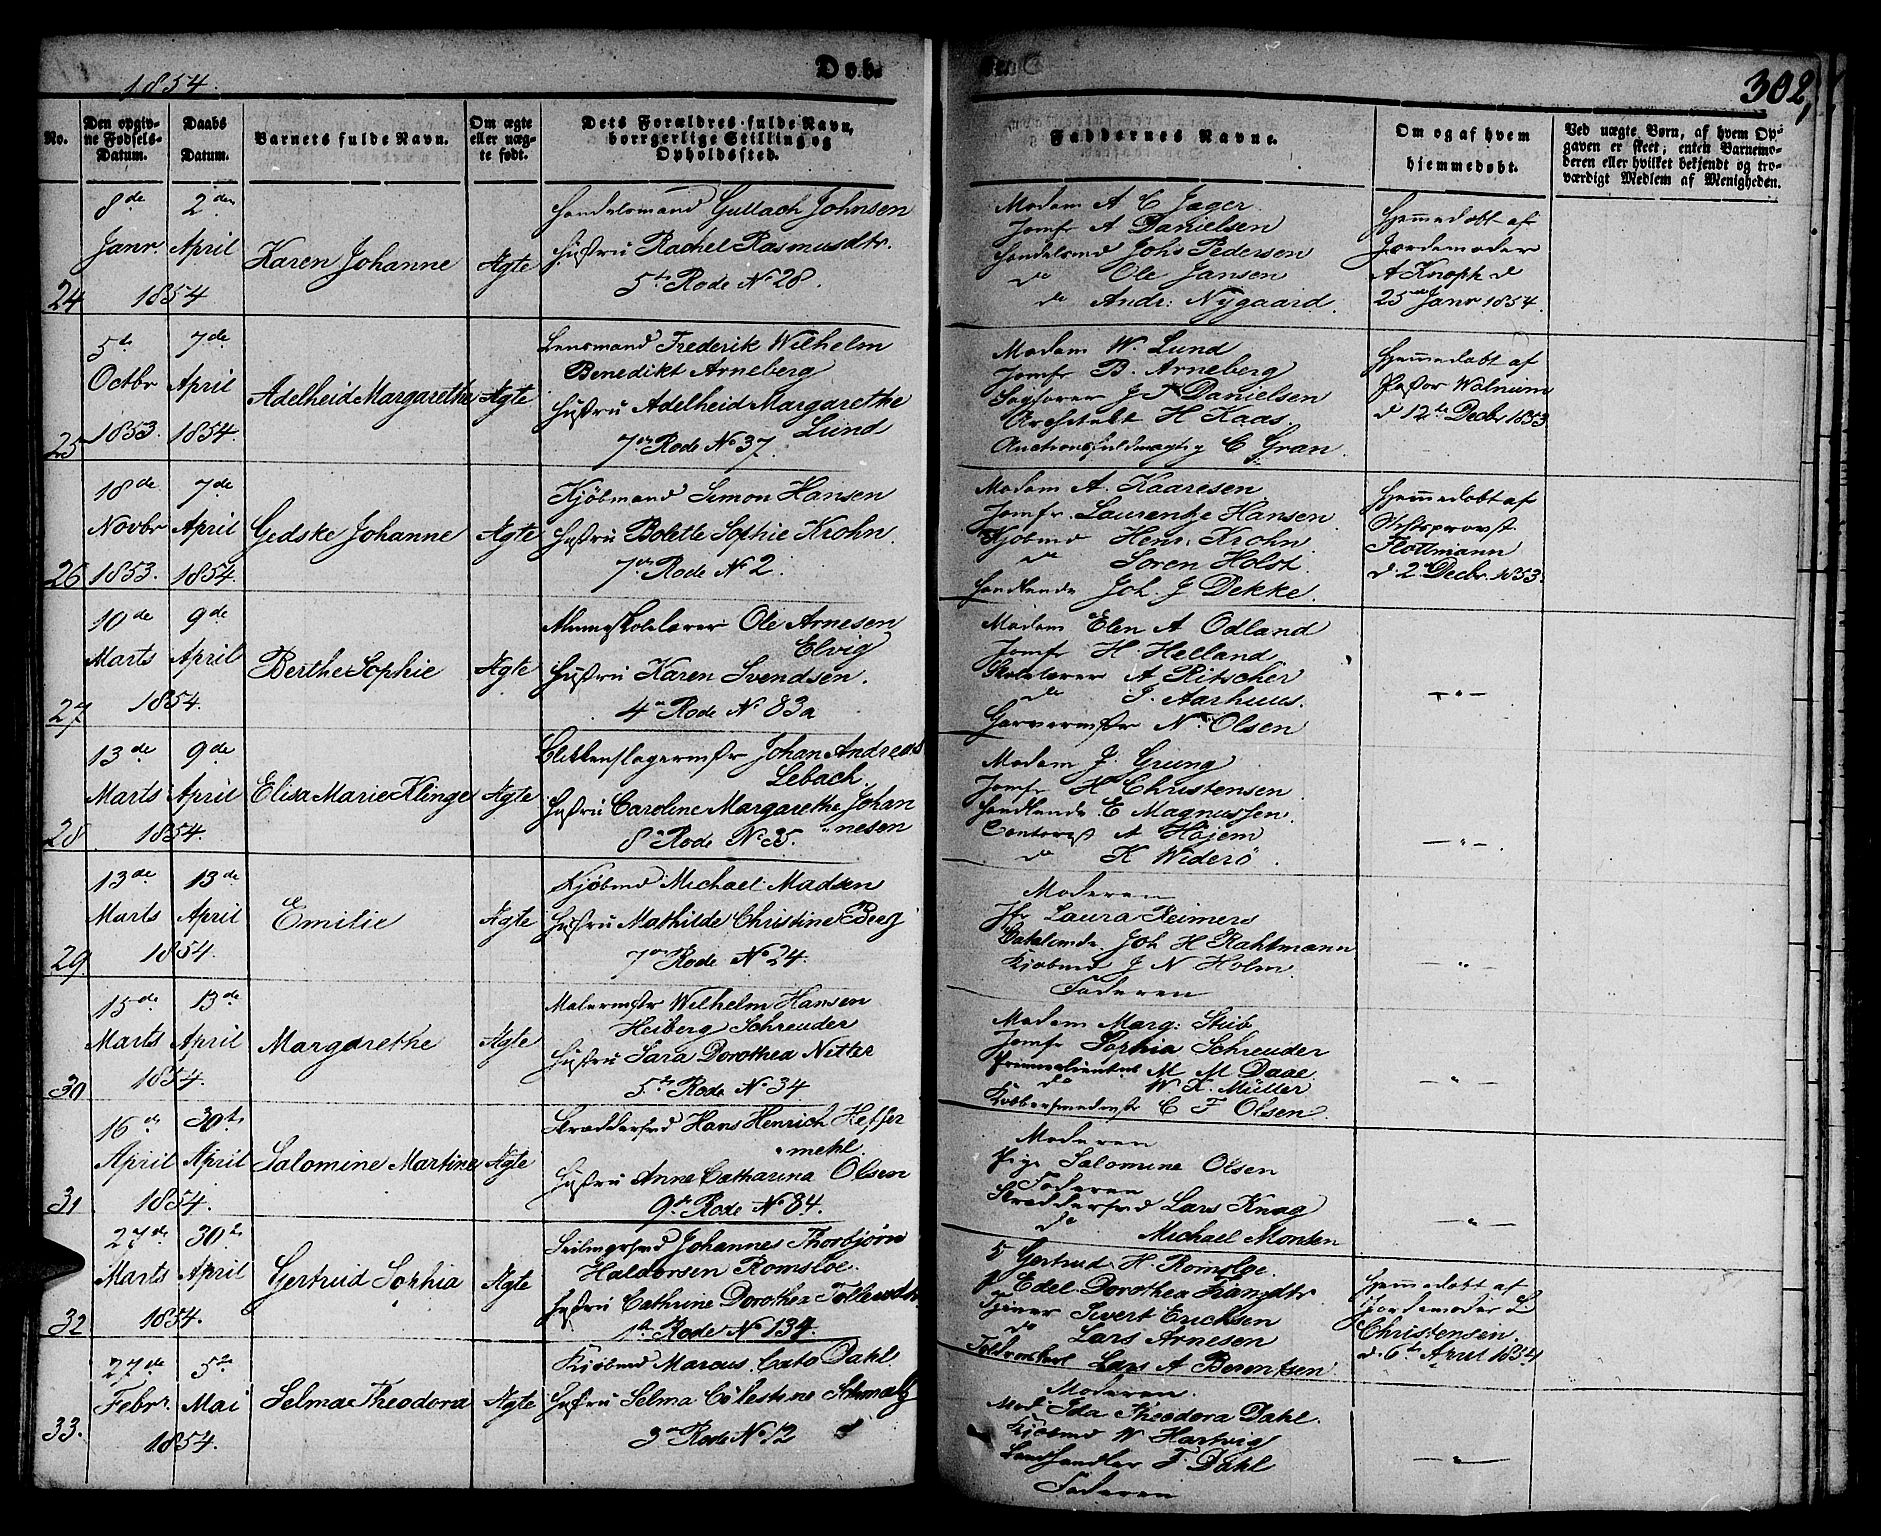 1854.
Døb.
302,
No.
Den opgivne Fødsels-Datum.
Daabs Datum.
Barnets fulde Navn.
Om ægte eller uægte født.
Dets Forældres fulde Navn, borgerlige Stilling og Opholdssted.
Faddernes Navne.
Om og af hvem hjemmedøbt.
Ved uægte Børn, af hvem Opgaven er skeet; enten Barnemoderen eller hvilket bekjendt og troværdigt Medlem af Menigheden.
24
8de Janr.
2den April
1854
Karen Johanne
Ægte
Handelsmand Gullach Johnsen
Hustru Rachel Rasmusdtr.
5te Rode No 28.
Madam A C Jæger
Jomfr A Danielsen
Handelsmd Johs Pedersen
do Ole Jansen
do Andr: Nygaard.
Hjemmedøbt af
Jordemoder
A Knoph d
25de Janr 1854.
25
5te Octbr 1853.
7de April 1854.
Adelheid Margarethe
Ægte
Lensmand Frederik Wilhelm
Benedikt Arneberg
Hustru Adelheid Margarethe
Lund
7de Rode No 37.
Madam W. Lund
Jomfr B. Arneberg
J Danielsen
Architekt H Kaas
Auctionsfuldmægtig C Gran.
Hjemmedøbt af
Pastor Walnum
d 12te Decbr 1853
26
18de Novbr 1853.
7de April 1854.
Gedske Johanne
Ægte
Kjøbmand Simon Hansen
Hustru Bolette Sophie Krohn.
7de Rode No 2.
Madam A. Kaaresen
Jomfr Laurentze Hansen
Kjøbmd Henr. Krohn
do Søren Holst.
Handlende Joh. J Dekke.
Hjemmedøbt af
Stiftsprovst
Flottmann
d. 2 Decbr. 1853.
27
10de Marts
9de April
1854.
Berthe Sophie
Ægte
Almueskolelærer Ole Arnesen
Elvig
Hustru Karen Svendsen.
4de Rode No 83a
Madam Elen A Odland
Jomfr H. Helland
Skolelærer A Ritscher
do J. Aarhuus.
Garvermstr N. Olsen
— " —
28
13de Marts
9de April
1854.
Elisa Marie Klinge
Ægte
Blikkenslagermstr Johan Andreas
Lebach.
Hustru Caroline Margarethe Johan
"nesen
8de Rode No 35.
Madam J. Grung
Jomfr H Christensen
Handlende E Magnussen.
Contorist A Højem
do K Widerö.
— " —.
29
13de Marts
13de April
1854.
Emilie
Ægte
Kjøbmd Michael Madsen
Hustru Mathilde Christine Berg
7de Rode No 24.
Moderen
Jfr Laura Reimers
Joh H Rahtmann
Kjøbmd J N Holm.
Faderen
— " —
30
15de Marts
13de April
1854.
Margarethe
Ægte
Malermstr Wilhelm Hansen
Heiberg Schreuder
Hustru Sara Dorothea Nitter
5te Rode No 34
Madam Marg: Stub
Jomfr Sophia Schreuder
Premierlieutnt M M Daae
do W K. Müller
Kobbersmedmstr C F Olsen.
— " —
31
16de April
30te April
1854.
Salomine Martine
Ægte
Skræddersvd Hans Henrich Heffer
"mehl.
Hustru Anne Catharina Olsen
9de Rode No 84.
Moderen
Pige Salomine Olsen
Faderen
Skræddersvd Lars Knag
do Michael Monsen
— " —
32
27de Marts
30te April
1854.
Gertrud Sophia
Ægte
Seilmgrsvd Johannes Thorbjørn
Haldorsen Romsloe.
Hustru Cathrine Dorothea Tollevdtr
1ste Rode No 134.
Gertrud H. Romsloe.
P Edel Dorothea Frangdtr
Tjener Sivert Erichsen
do Lars Arnesen
Toldroerkarl Lars A Berentsen.
Hjemmedøbt af
Jordemoder L
Christensen.
d. 6te April 1854
33.
27de Febr.
5te Mai
1854.
Selma Theodora
Ægte
Kjøbmd Marcus Cato Dahl.
Hustru Selma Cölestine Schmalz
3de Rode No 12
Moderen.
Mad Ida Theodora Dahl.
Kjøbmd W Hartvig
Landhandler F. Dahl
Faderen
— " —